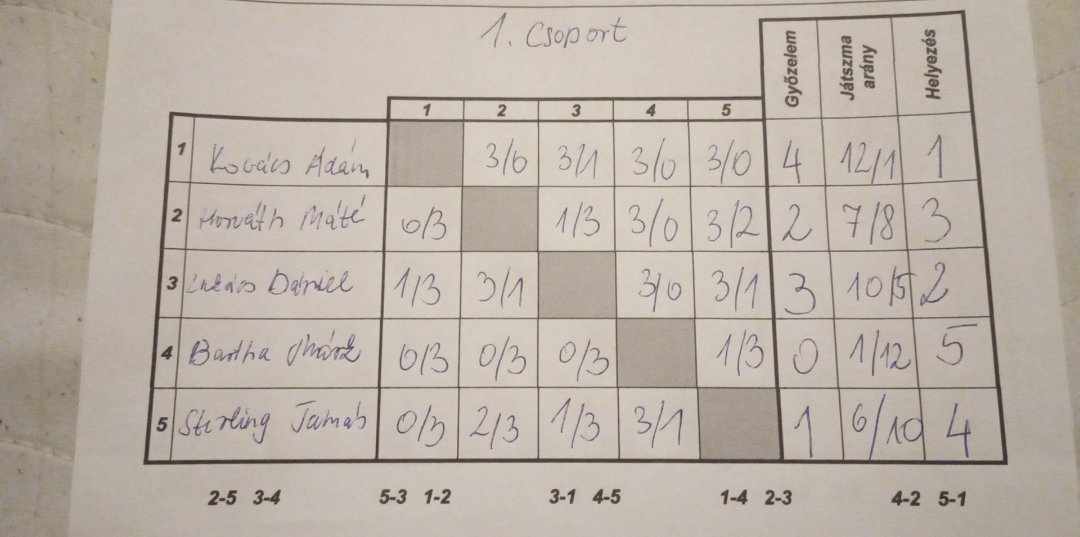 1. Csoport
Győzelem Játszma arány Helyezés
1 2 3 4 5
1 Kovács Ádám 3/0 3/1 3/0 3/0 4 12/1 1
2 Horváth Máté 0/3 1/3 3/0 3/2 2 7/8 3
3 Lukács Dániel 1/3 3/1 3/0 3/1 3 10/5 2
4 Bartha Márk 0/3 0/3 0/3 1/3 0 1/12 5
5 Sterling Tamás 0/3 2/3 1/3 3/1 1 6/10 4
2-5 3-4 5-3 1-2 3-1 4-5 1-4 2-3 4-2 5-1